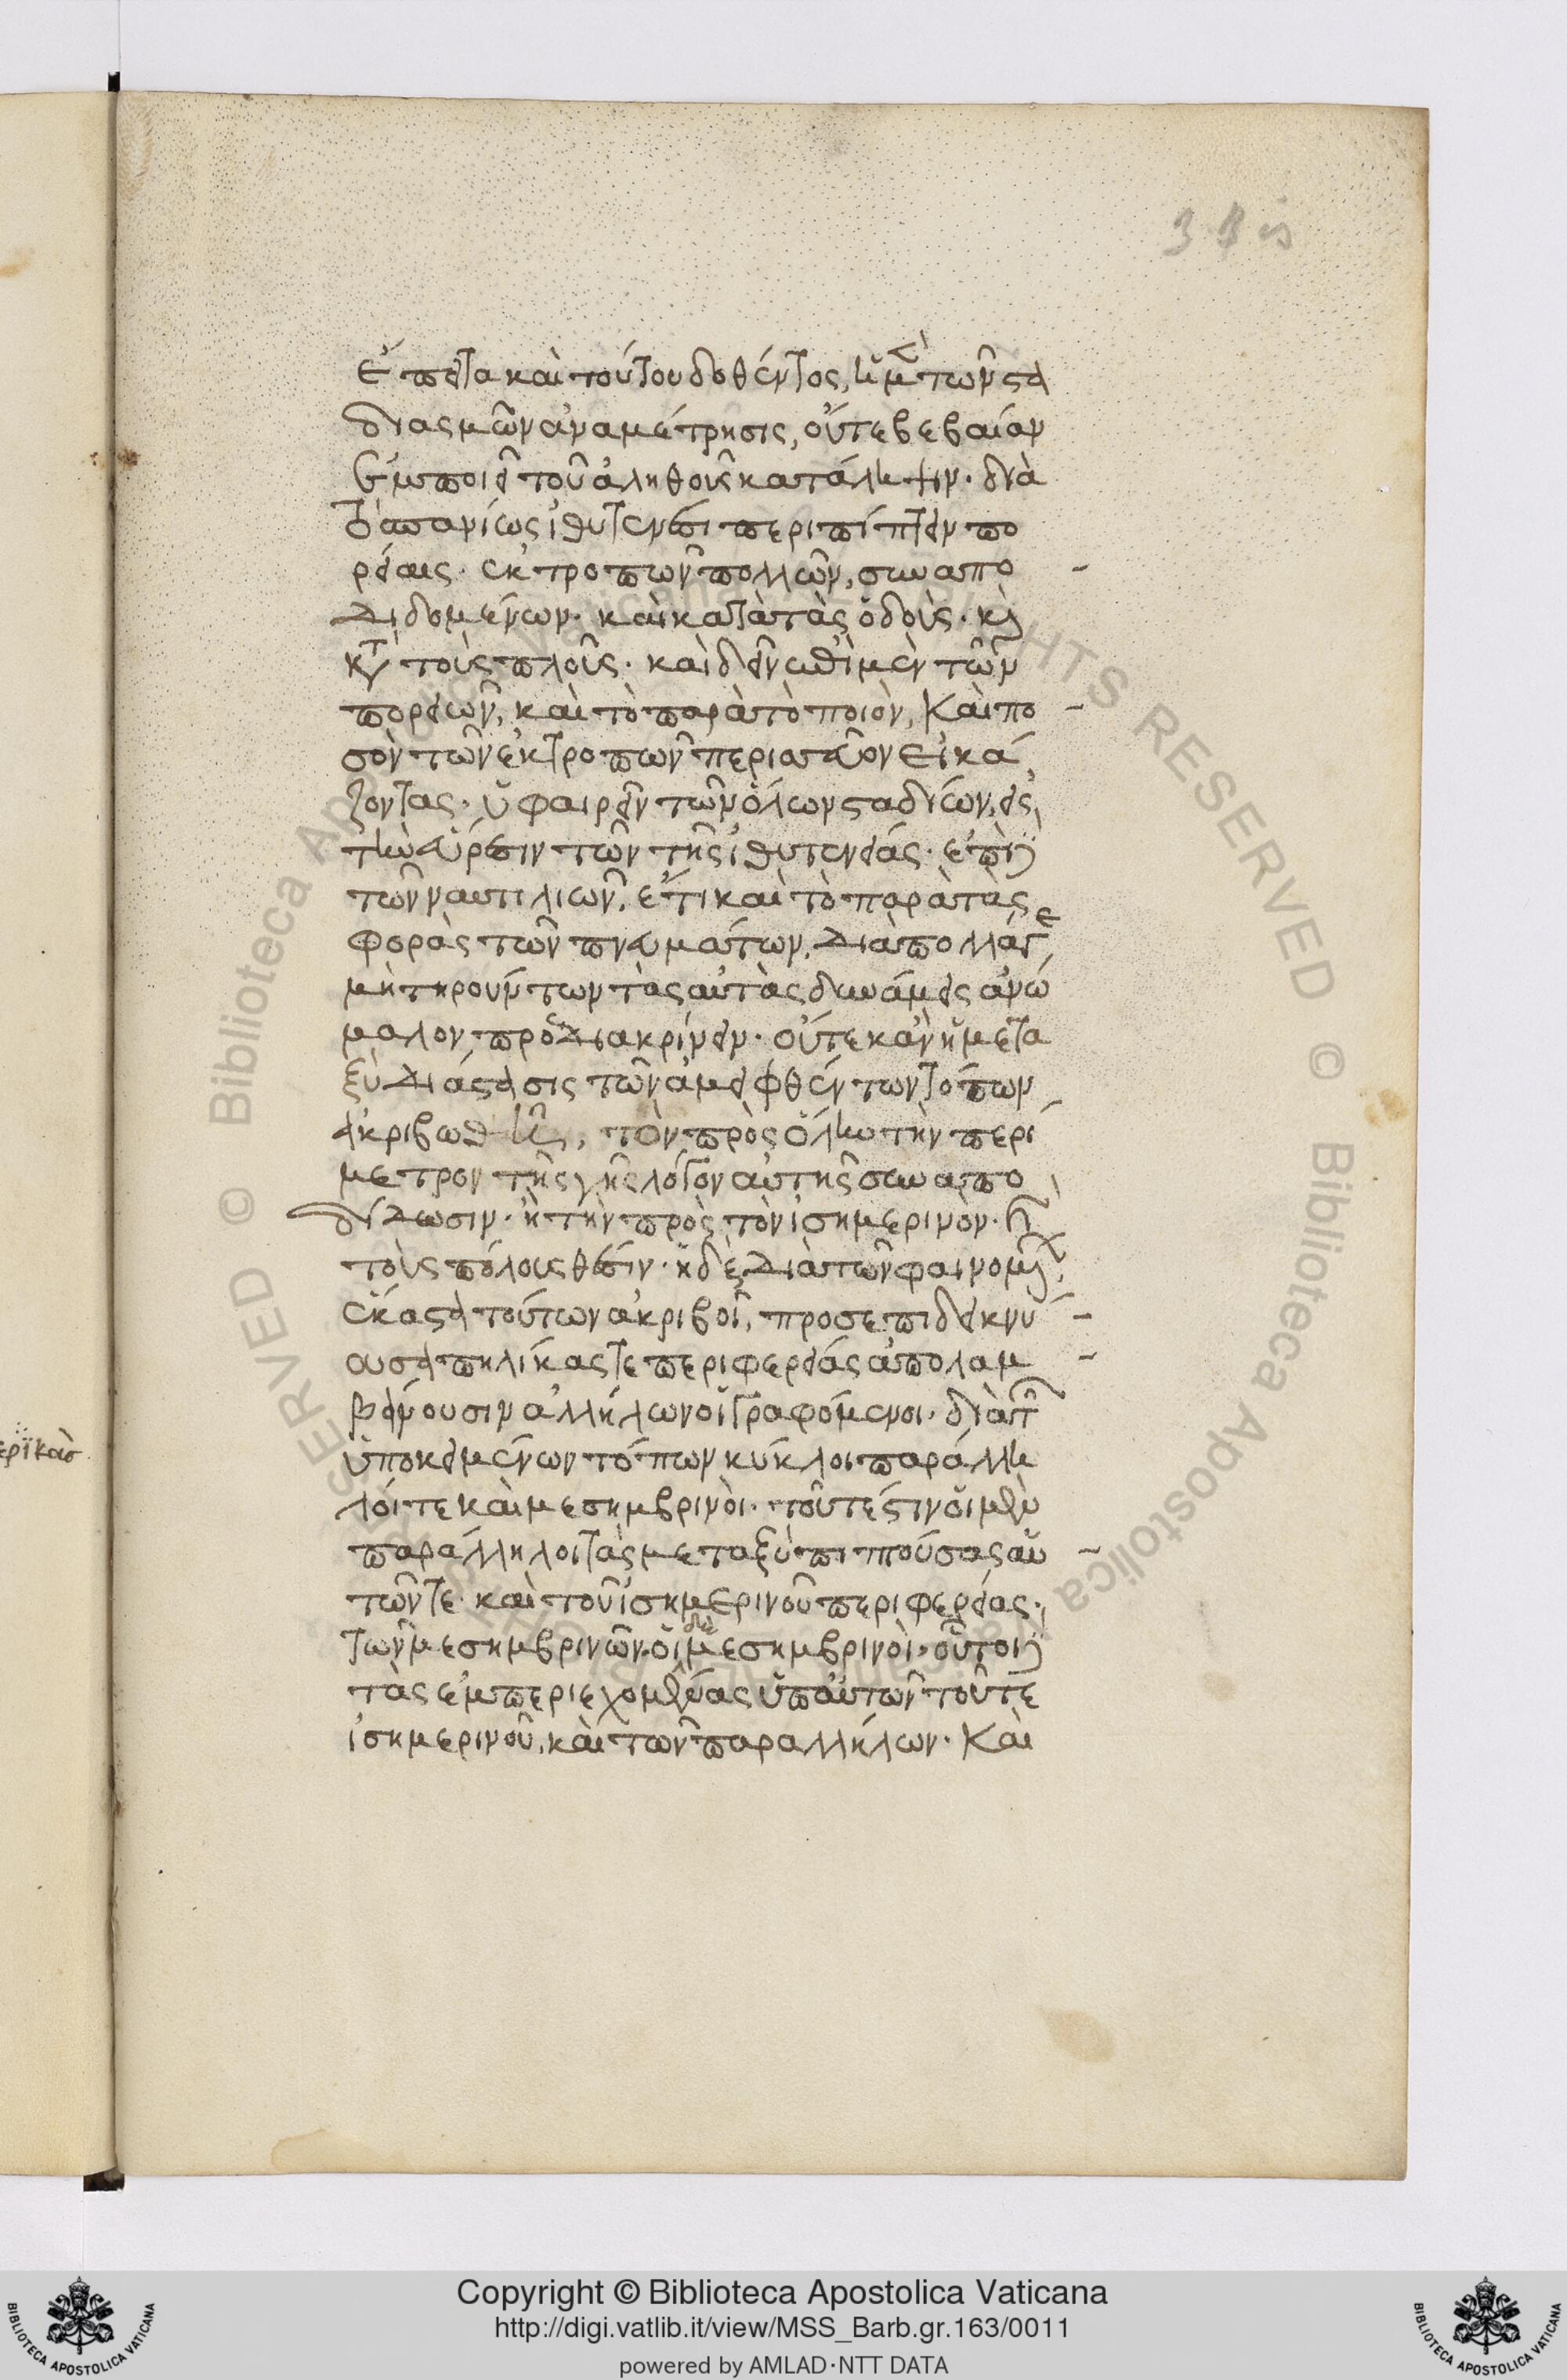 ἔπειτα καὶ τούτου δοθέντος, ἡ μὲν τῶν στα
διασμῶν ἀναμέτρησις, οὔτε βεβαίαν
ἐμποιεῖ τοῦ ἀληθοῦς κατάληψιν. διὰ
τὸ σπανίως ἰθυτενέσι περιπίπτειν πο
ρείαις. ἐκτροπῶν πολλῶν, συναπο
διδομένων. καὶ κατὰ τὰς ὁδοὺς. καὶ
κατὰ τοὺς πλοῦς. καὶ δεῖν ἐπὶ μὲν τῶν
πορειῶν, καὶ τὸ παρὰ τὸ ποιὸν, καὶ πο
σὸν τῶν ἐκτροπῶν περισσεῦον εἰκά
ζοντας. ὑφαιρεῖν τῶν ὅλων σταδίων, εἰς
τὴν εὕρεσιν τῶν τῆς ἰθυτενείας. ἐπὶ δὲ
τῶν ναυτιλιῶν, ἔτι καὶ τὸ παρὰ τὰς
φορὰς τῶν πνευμάτων, διὰ πολλά γε
μὴ τηρούντων τὰς αὐτὰς δυνάμεις ἀνώ
μαλον προσδιακρίνειν. οὔτε κἂν ἡ μετα
ξὺ διάστασις τῶν ἀμειφθέντων τόπων
ἀκριβωθῇ, τὸν πρὸς ὅλην τὴν περί
μετρον τῆς γῆς λόγον αὐτῆς συναπο
δίδωσιν. ἢ τὴν πρὸς τὸν ἰσημερινὸν. καὶ
τοὺς πόλους θέσιν. ἡ δὲ διὰ τῶν φαινομένων,
ἕκαστα τούτων ἀκριβοῖ, προσεπιδεικνύ
ουσα πηλίκας τε περιφερείας ἀπολαμ
βάνουσιν ἀλλήλων οἱ γραφόμενοι. διὰ τῶν
ὑποκειμένων τόπων κύκλοι παράλλη
λοί τε καὶ μεσημβρινοὶ. τουτέστιν οἱ μὲν
παράλληλοι τὰς μεταξὺ πιπτούσας αὐ
τῶν τε καὶ τοῦ ἰσημερινοῦ περιφερείας.
τῶν μεσημβρινῶν. οἱ δὲ μεσημβρινοὶ, οὗτοι δὲ
τὰς ἐμπεριεχομένας ὑπ' αὐτῶν τοῦ τε
ἰσημερινοῦ, καὶ τῶν παραλλήλων. Καὶ
Copyright © Biblioteca Apostolica Vaticana
http://digi.vatlib.it/view/MSS_Barb.gr.163/0011
powered by AMLAD·NTT DATA